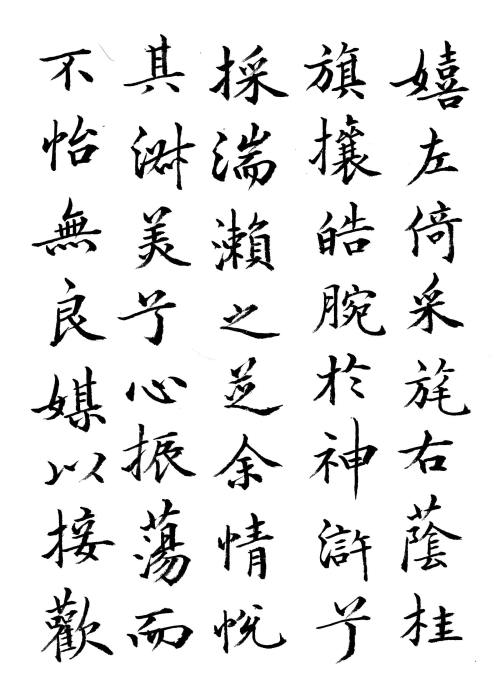 嬉左倚采旄右蔭桂
旗攘皓腕於神滸兮
採湍瀨之芝余情悅
其淑美兮心振蕩而
不怡無良媒以接歡